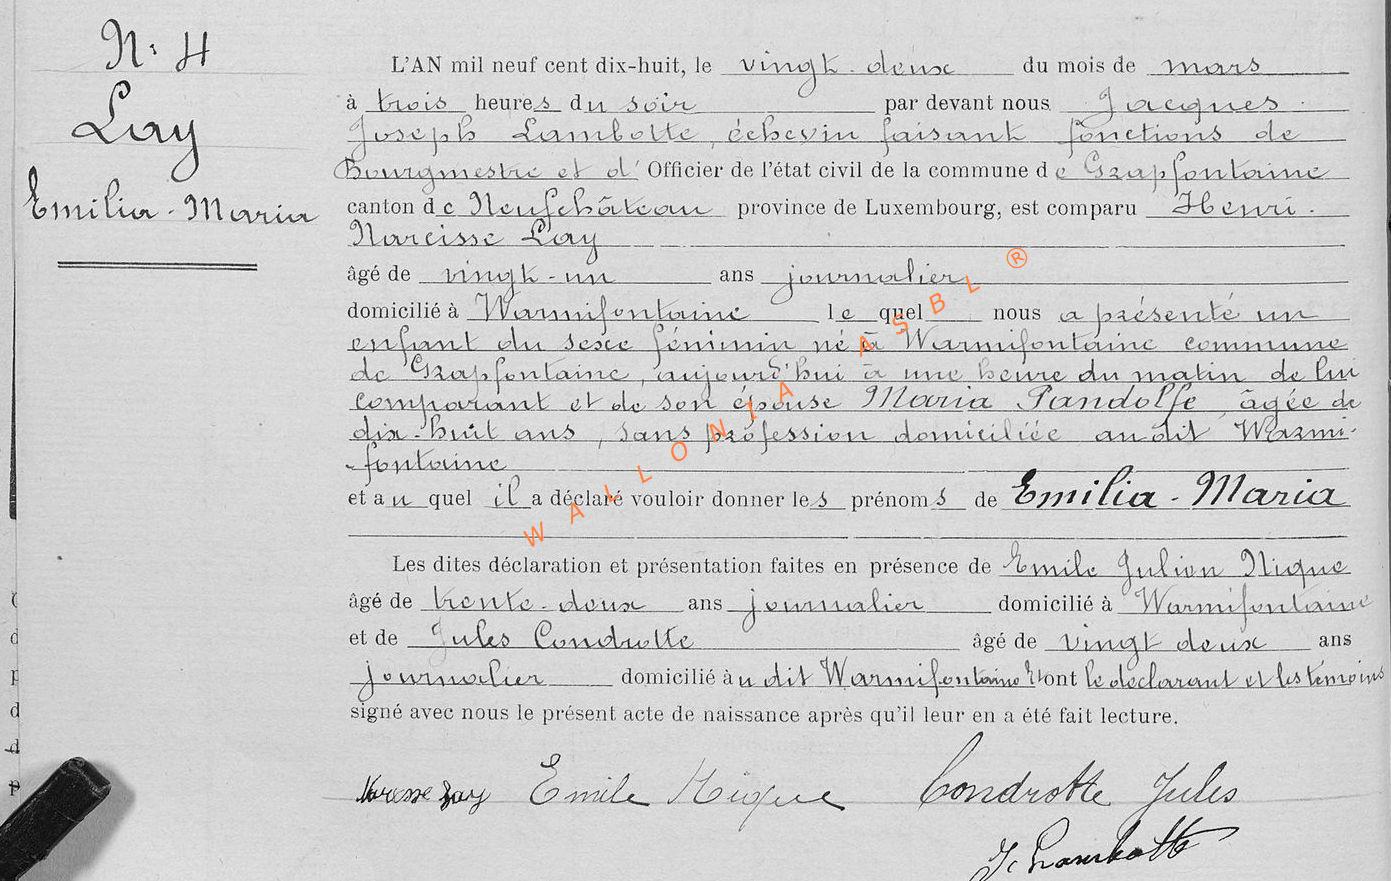 N: 4
Lay
Emilia-Maria
L'AN mil neuf cent dix-huit, le vingt-deux du mois de mars
à trois heures du soir par devant nous Jacques
Joseph Lambotte, échevin faisant fonctions de
Bourgmestre et d' Officier de l'état civil de la commune de Grapfontaine
canton de Neufchâteau province de Luxembourg, est comparu Henri
Narcisse Lay
âgé de vingt-un ans journalier
domicilié à Warmifontaine lequel nous a présenté un
enfant du sexe féminin né à Warmifontaine commune
de Grapfontaine, aujourd'hui à une heure du matin de lui
comparant et de son épouse Maria Pandolfe, âgée de
dix-huit ans, sans profession domiciliée audit Warmi-
-fontaine
et auquel il a déclaré vouloir donner les prénoms de Emilia-Maria
Les dites déclaration et présentation faites en présence de Emile Julien Nique
âgé de trente-deux ans journalier domicilié à Warmifontaine
et de Jules Condrotte âgé de vingt deux ans
journalier domicilié au dit Warmifontaine Et ont le déclarant et les témoins
signé avec nous le présent acte de naissance après qu'il leur en a été fait lecture.
Narcisse Lay Emile Nique Condrotte Jules
J. Lambotte
WALLONIA ASBL ®